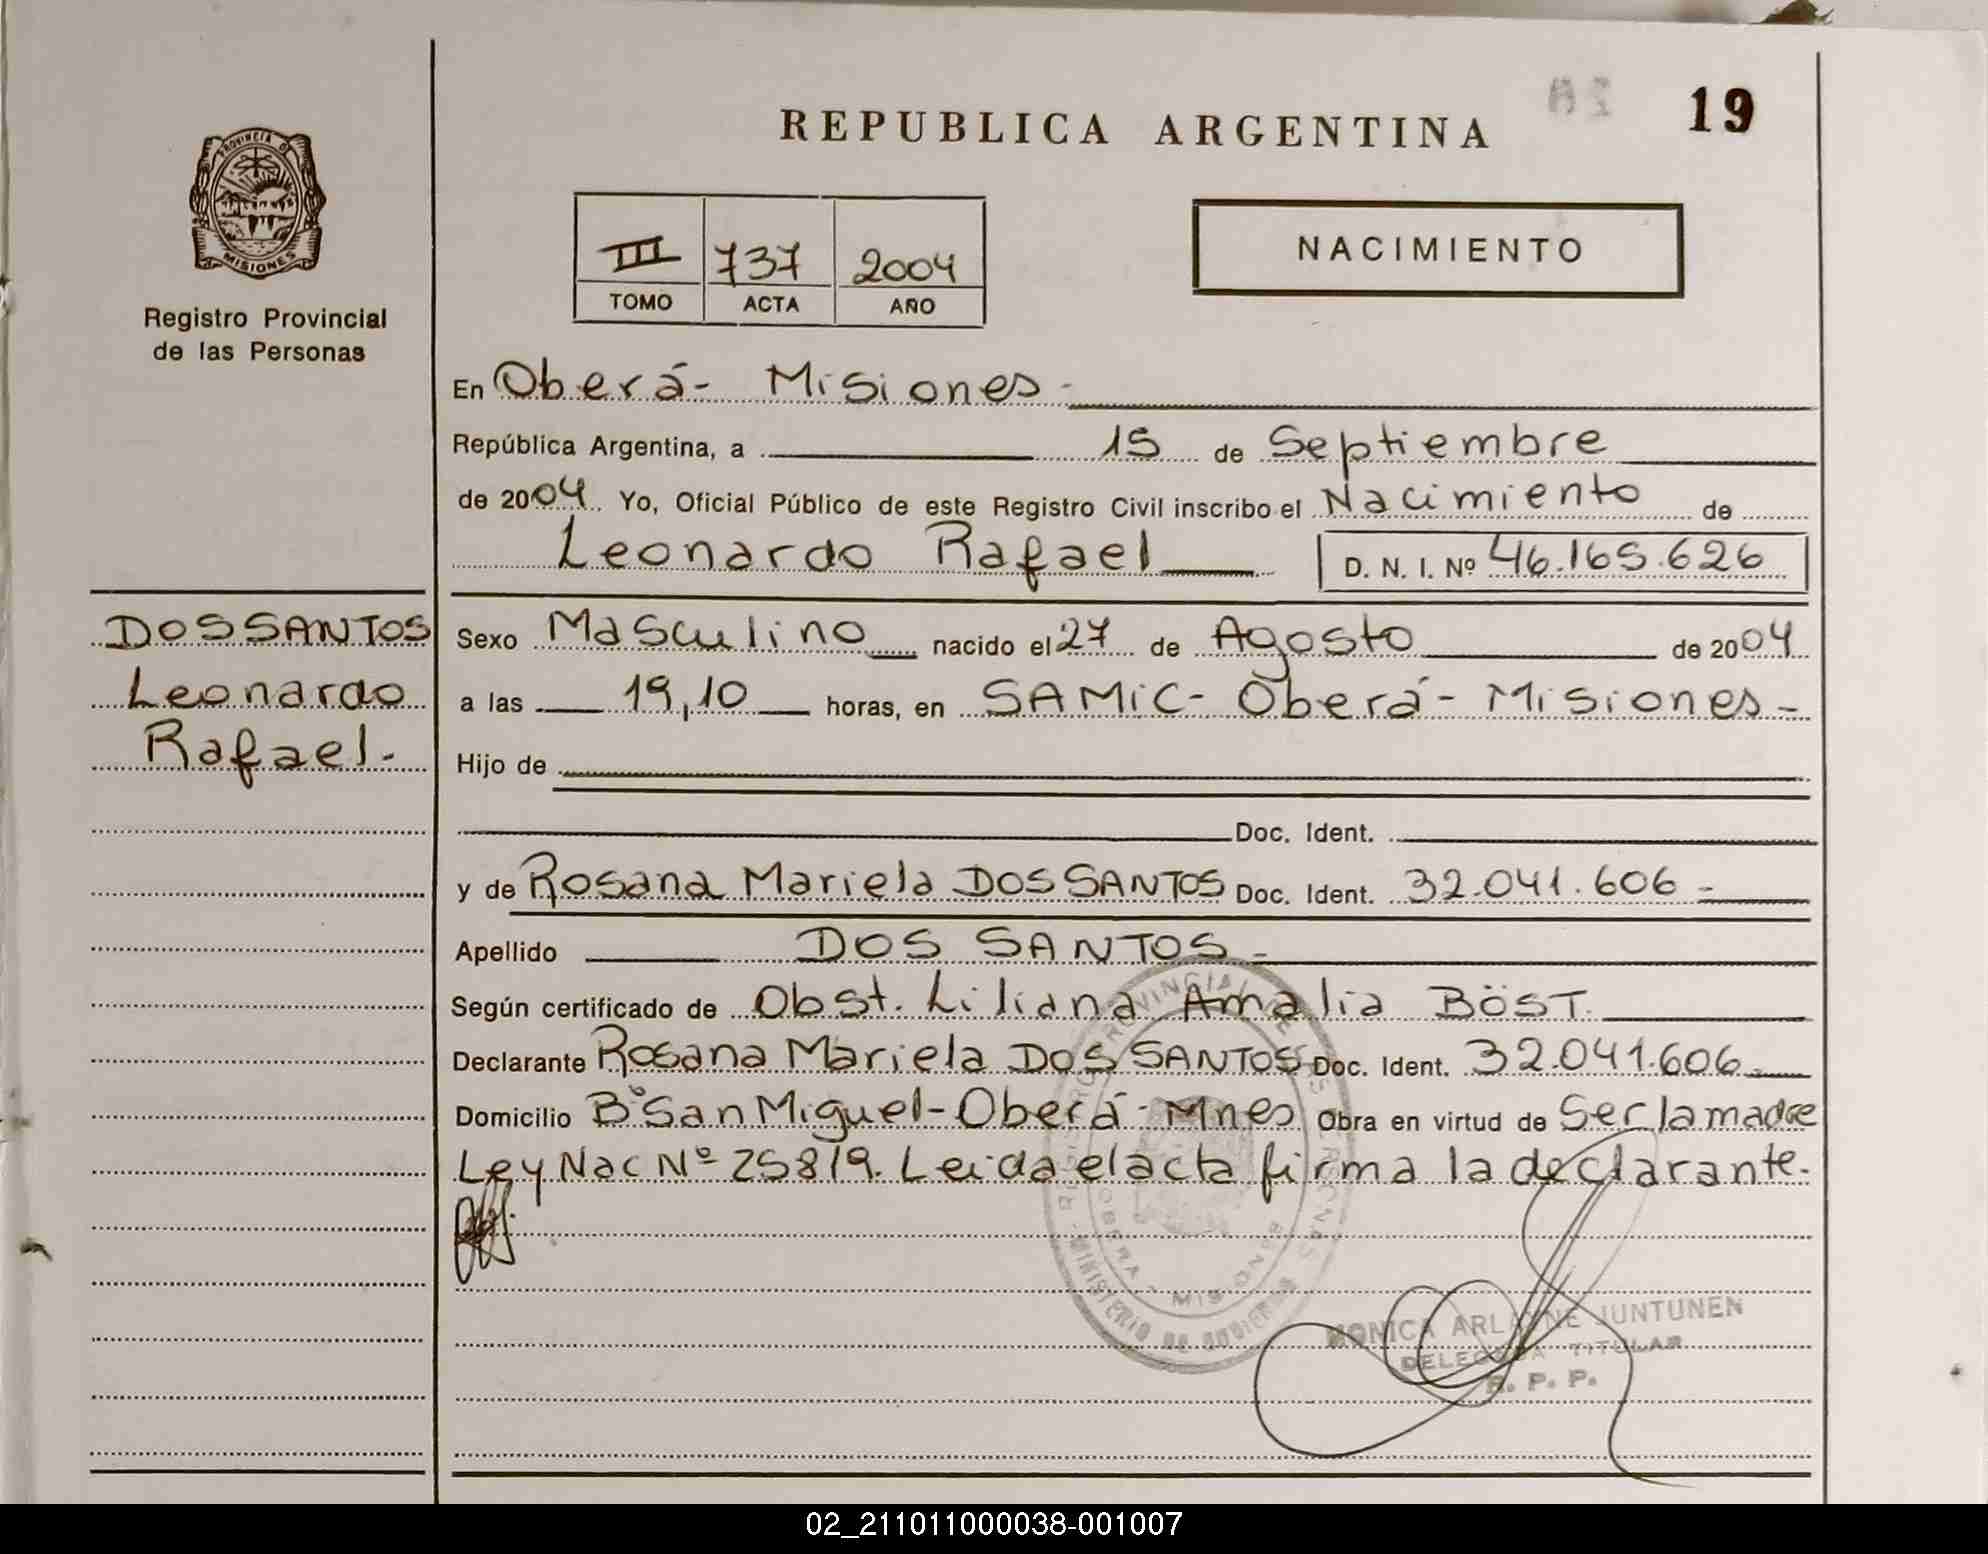 REPUBLICA ARGENTINA
19
PROVINCIA D
MISIONES
Registro Provincial
de las Personas
III 737 2004
TOMO ACTA AÑO
NACIMIENTO
En Oberá- Misiones-
República Argentina, a 15 de Septiembre
de 2004 Yo, Oficial Público de este Registro Civil inscribo el Nacimiento de
Leonardo Rafael D. N. I. Nº 46.165.626
DOS SANTOS
Leonardo
Rafael-
Sexo Masculino nacido el 27 de Agosto de 2004
a las 19,10 horas, en SAMIC- Oberá- Misiones-
Hijo de
Doc. Ident.
y de Rosana Mariela DOS SANTOS Doc. Ident. 32.041.606-
Apellido DOS SANTOS-
Según certificado de Obst. Liliana Amalia BÖST.
Declarante Rosana Mariela DOS SANTOS Doc. Ident. 32.041.606
Domicilio Bº San Miguel- Oberá- Mnes Obra en virtud de Ser la madre
Ley Nac Nº 25819. Leida el acta firma la declarante.
MINISTERIO DE GOBIERNO
OBERA - MISIONES
MONICA ARLAYNE JUNTUNEN
DELEGADA TITULAR
R. P. P.
02_211011000038-001007